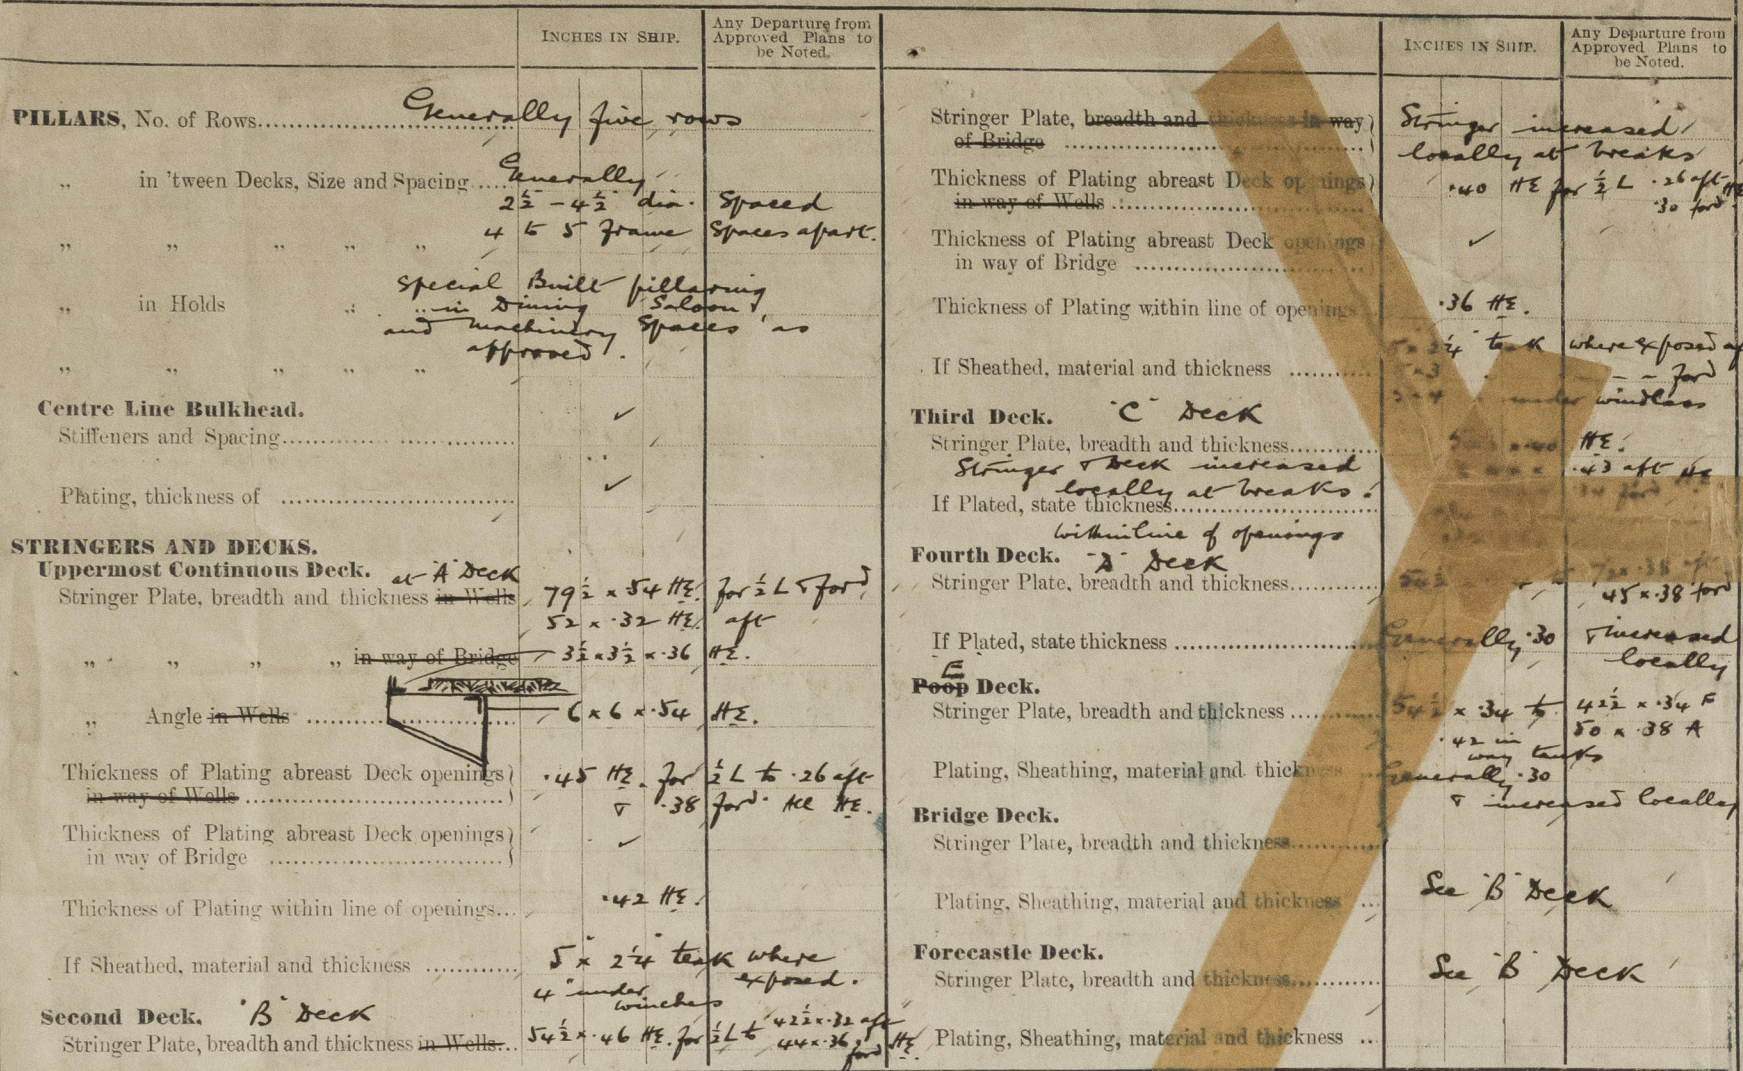 INCHES IN SHIP.
Any Departure from
Approved Plans to
be Noted.
PILLARS, No. of Rows Generally five rows
„ in 'tween Decks, Size and Spacing Generally
2½ - 4½" dia. Spaced
„ „ „ „ „ 4 to 5 frame spaces apart.
Special Built pillaring
„ in Holds „ in Dining Saloon,
and machinery spaces as
approved.
„ „ „ „ „
Centre Line Bulkhead. ✓
Stiffeners and Spacing
Plating, thickness of ✓
STRINGERS AND DECKS.
Uppermost Continuous Deck. at "A" Deck
Stringer Plate, breadth and thickness in Wells 79½ x .54 HE. for ½ L & ford
52 x .32 HE. aft
„ „ „ „ in way of Bridge 3½ x 3½ x .36 HE.
„ Angle in Wells 6 x 6 x .54 HE.
Thickness of Plating abreast Deck openings) .45 HE. for ½ L to .26 aft
in way of Wells & .38 ford. All HE.
Thickness of Plating abreast Deck openings) ✓
in way of Bridge
Thickness of Plating within line of openings... .42 HE.
If Sheathed, material and thickness 5" x 2¼" teak where
exposed.
4" under
winches
Second Deck. "B" Deck
Stringer Plate, breadth and thickness in Wells... 54½ x .46 HE. for ½ L to 42½ x .32 aft
44 x .36 ford HE.
INCHES IN SHIP.
Any Departure from
Approved Plans to
be Noted.
Stringer Plate, breadth and thickness in way) Stringer increased
of Bridge locally at breaks
Thickness of Plating abreast Deck openings) .40 HE for ½ L .26 aft HE
in way of Wells .30 ford.
Thickness of Plating abreast Deck openings ✓
in way of Bridge
Thickness of Plating within line of openings .36 HE.
2¼" teak where exposed aft
If Sheathed, material and thickness ford
under windlass
Third Deck. "C" Deck
Stringer Plate, breadth and thickness HE.
Stringer & Deck increased .43 aft HE
locally at breaks.
If Plated, state thickness
within line of openings
Fourth Deck. "D" Deck
Stringer Plate, breadth and thickness 54½
45 x .38 ford
If Plated, state thickness Generally .30 & increased
locally
Poop E Deck.
Stringer Plate, breadth and thickness 54½ x .34 to 42½ x .34 F
50 x .38 A
.42 in
way tanks
Plating, Sheathing, material and thickness Generally .30
& increased locally
Bridge Deck.
Stringer Plate, breadth and thickness
Plating, Sheathing, material and thickness See "B" Deck
Forecastle Deck.
Stringer Plate, breadth and thickness See "B" Deck
Plating, Sheathing, material and thickness